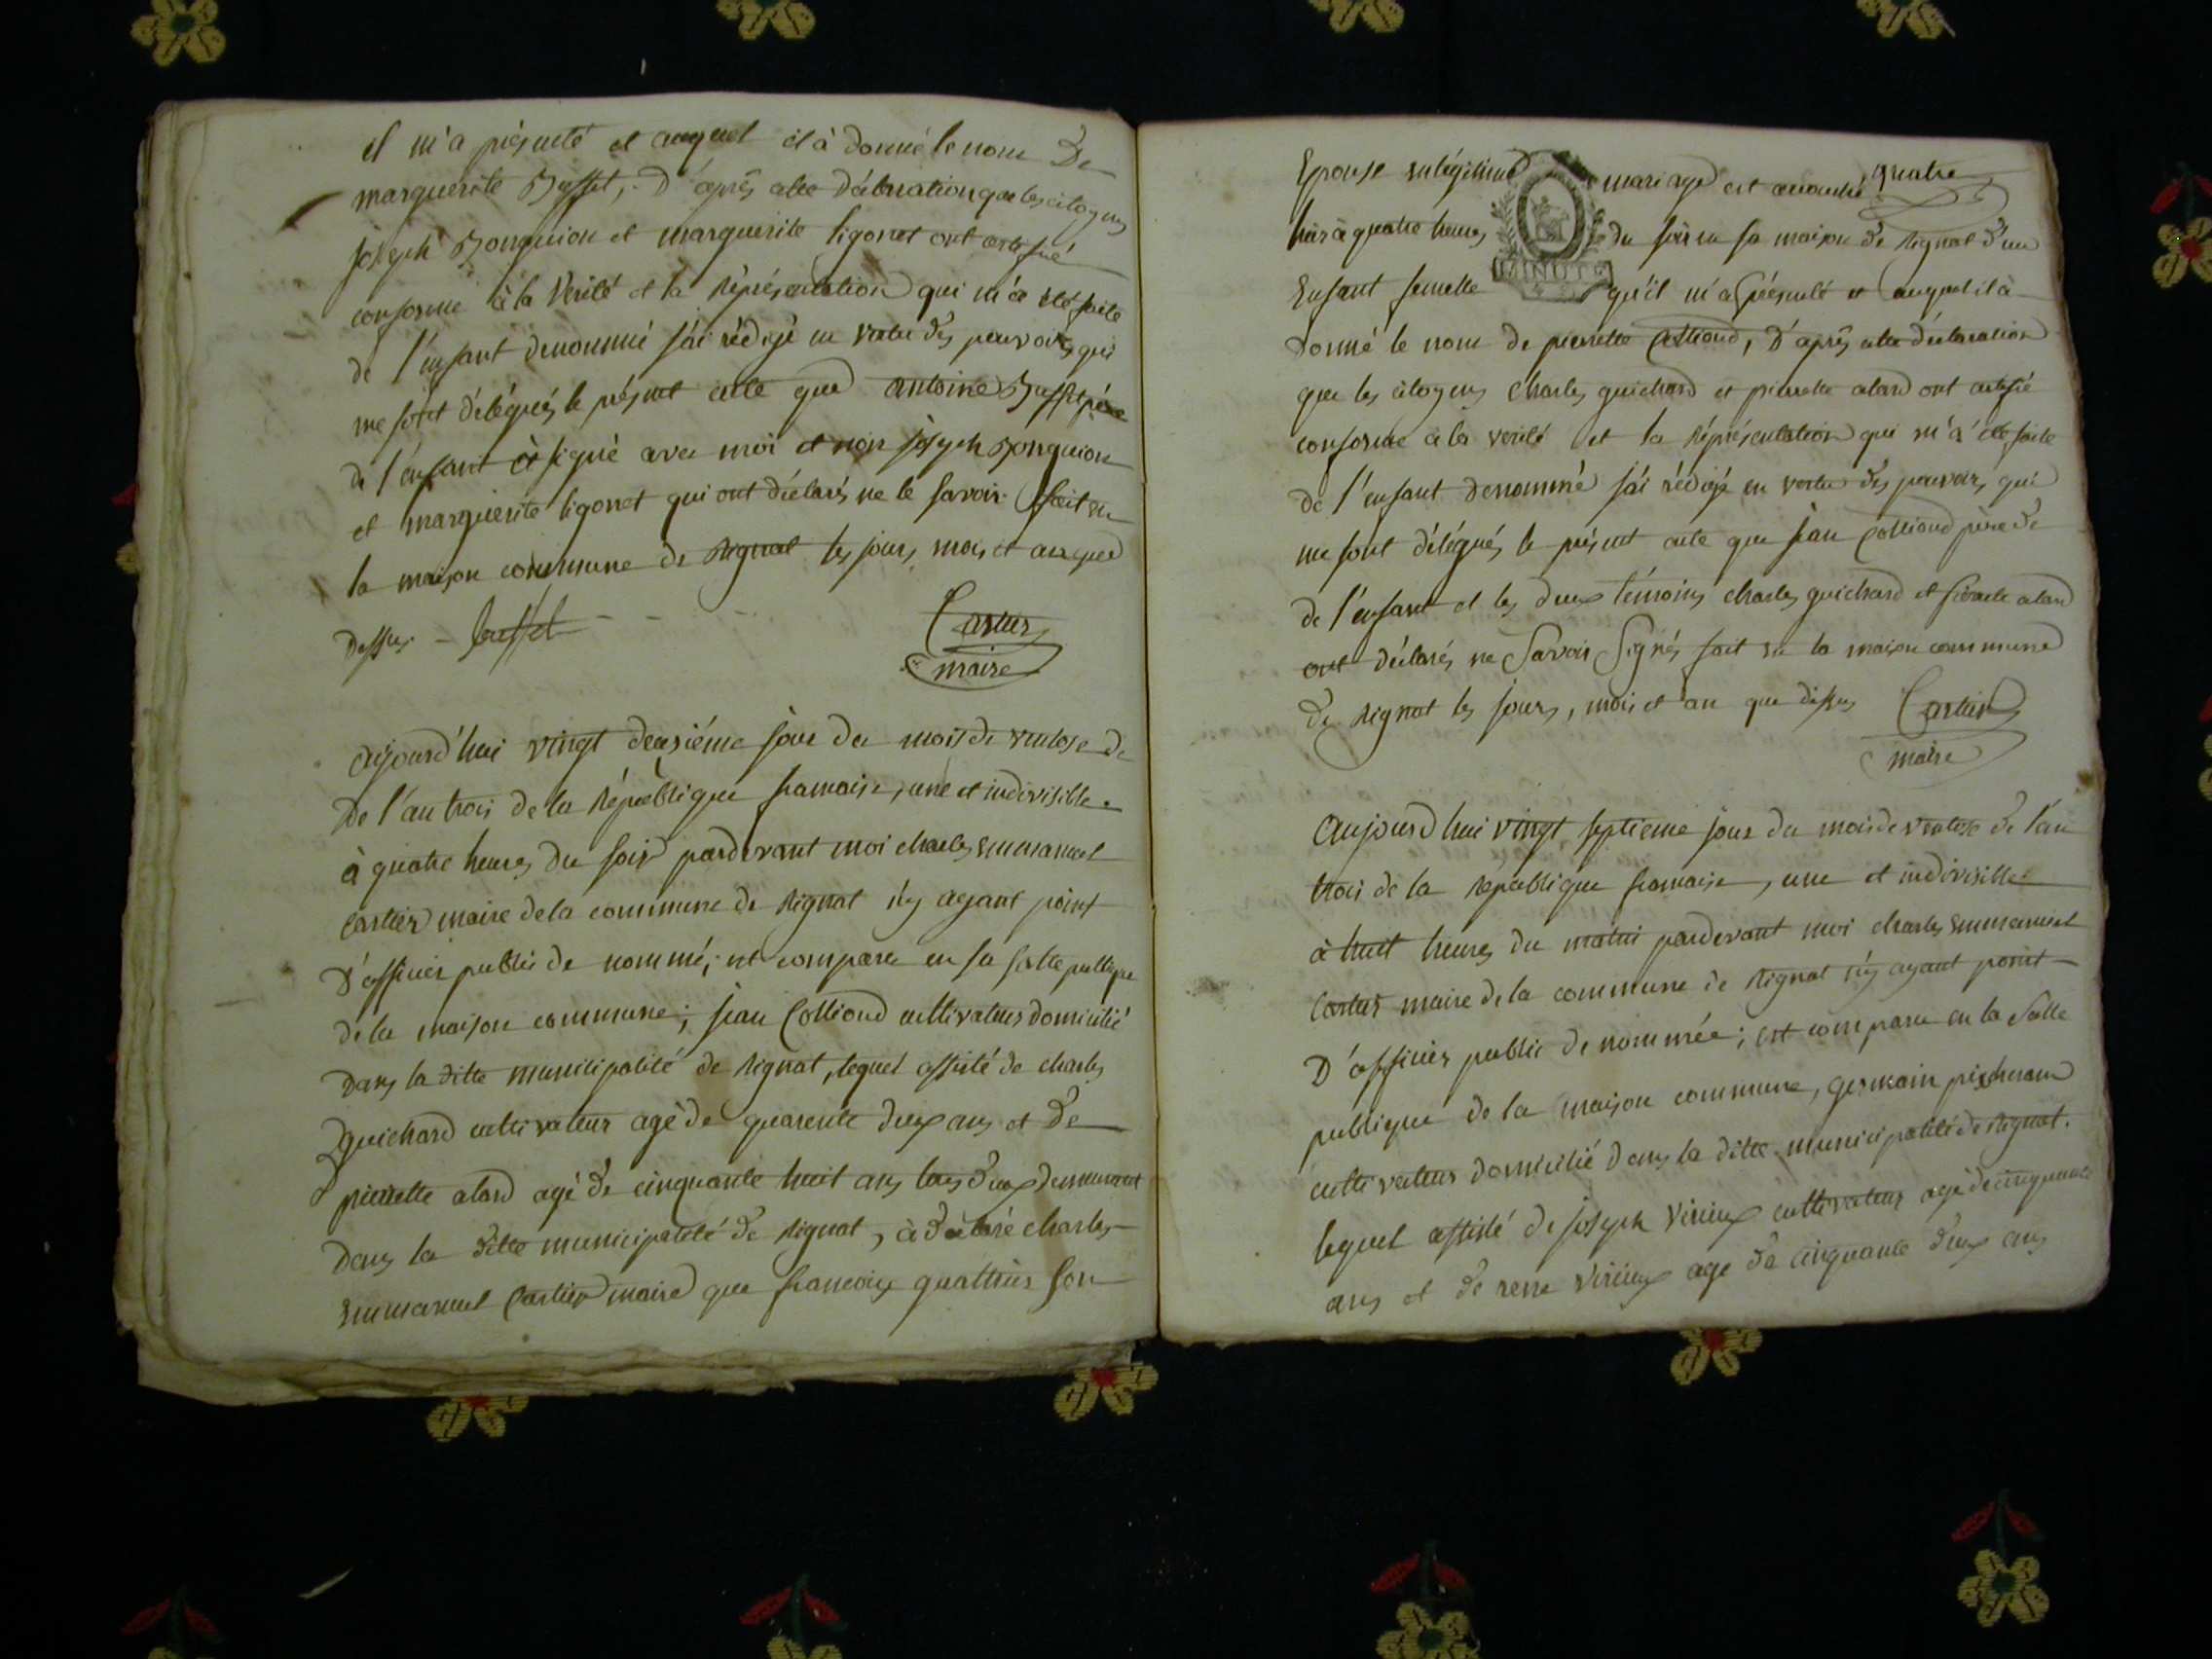 il m'a présenté et auquel il à donné le nom De
marguerite Buffet, D'après cette déclaration que les citoyens
joseph Bonguion et marguerite ligonet ont certifié
conforme à la Verité et la Réprésentation qui m'a été faite
de l'enfant denommé j'ai rédigé en vertu des pouvoirs qui
me sont délégués le présent acte que antoine Buffet père
de l'enfant à signé avec moi et non joseph Bonguion
et marguerite ligonet qui ont déclarés ne le savoir fait en
la maison commune de Rignat les jours, mois et an que
Dessus - buffet
Cartier
maire
aujourd'hui vingt deuxiéme jour du mois de ventose de
De l'an trois de la République francaise, une et indivisible.
à quatre heures du soir pardevant moi charles Emmanuel
Cartier maire dela commune de Rignat n'y ayant point
D'officier public de nommé; est comparu en sa salle publique
de la maison commune; jean Colliond cultivateur domicilié
Dans la ditte municipalité de Rignat, lequel assisté de charles
guichard cultivateur agé de quarente deux ans et De
pierrette alard agé de cinquante huit ans tous deux demeurant
Dans la ditte municipalité de Rignat, à déclaré charles
Emmanuel Cartier maire que francoise son
Epouse en légitime mariage est accouché quatre
hier à quatre heures du soir en sa maison de Rignat d'un
Enfant femelle qu'il m'a présenté et auquel il à
MINUTE
Donné le nom de pierrette Colliond, D'après cette déclaration
que les citoyens Charles guichard et pierrette alard ont certifié
conforme à la verité et la Réprésentation qui m'a été faite
de l'enfant denommé j'ai rédigé en vertu des pouvoirs qui
me sont délégués le présent acte que jean Colliond père de
de l'enfant et les deux témoins charles guichard et alard
ont déclarés ne Savoir Signés fait en la maison commune
de Rignat les jours, mois et an que dessus Cartier
maire
aujourd'hui vingt septieme jour du mois de ventose de l'an
trois de la République francaise, une et indivisible
à huit heures du matin pardevant moi charles Emmanuel
Cartier maire de la commune de Rignat n'y ayant point
D'officier public de nommée; est comparu en la Salle
publique de la maison commune, germain picherand
cultivateur domicilié dans la ditte municipalité de Rignat.
lequel assisté de joseph Virieux cultivateur agé de cinquante
ans et de rene Virieux agé de cinquante deux ans